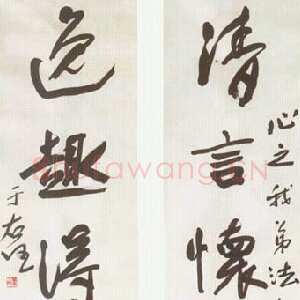 清言懷
心之我弟法
逸趣得
于右任
Shufawang.CN